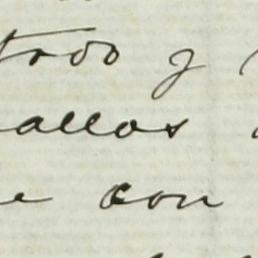 trodo y
allos
e con